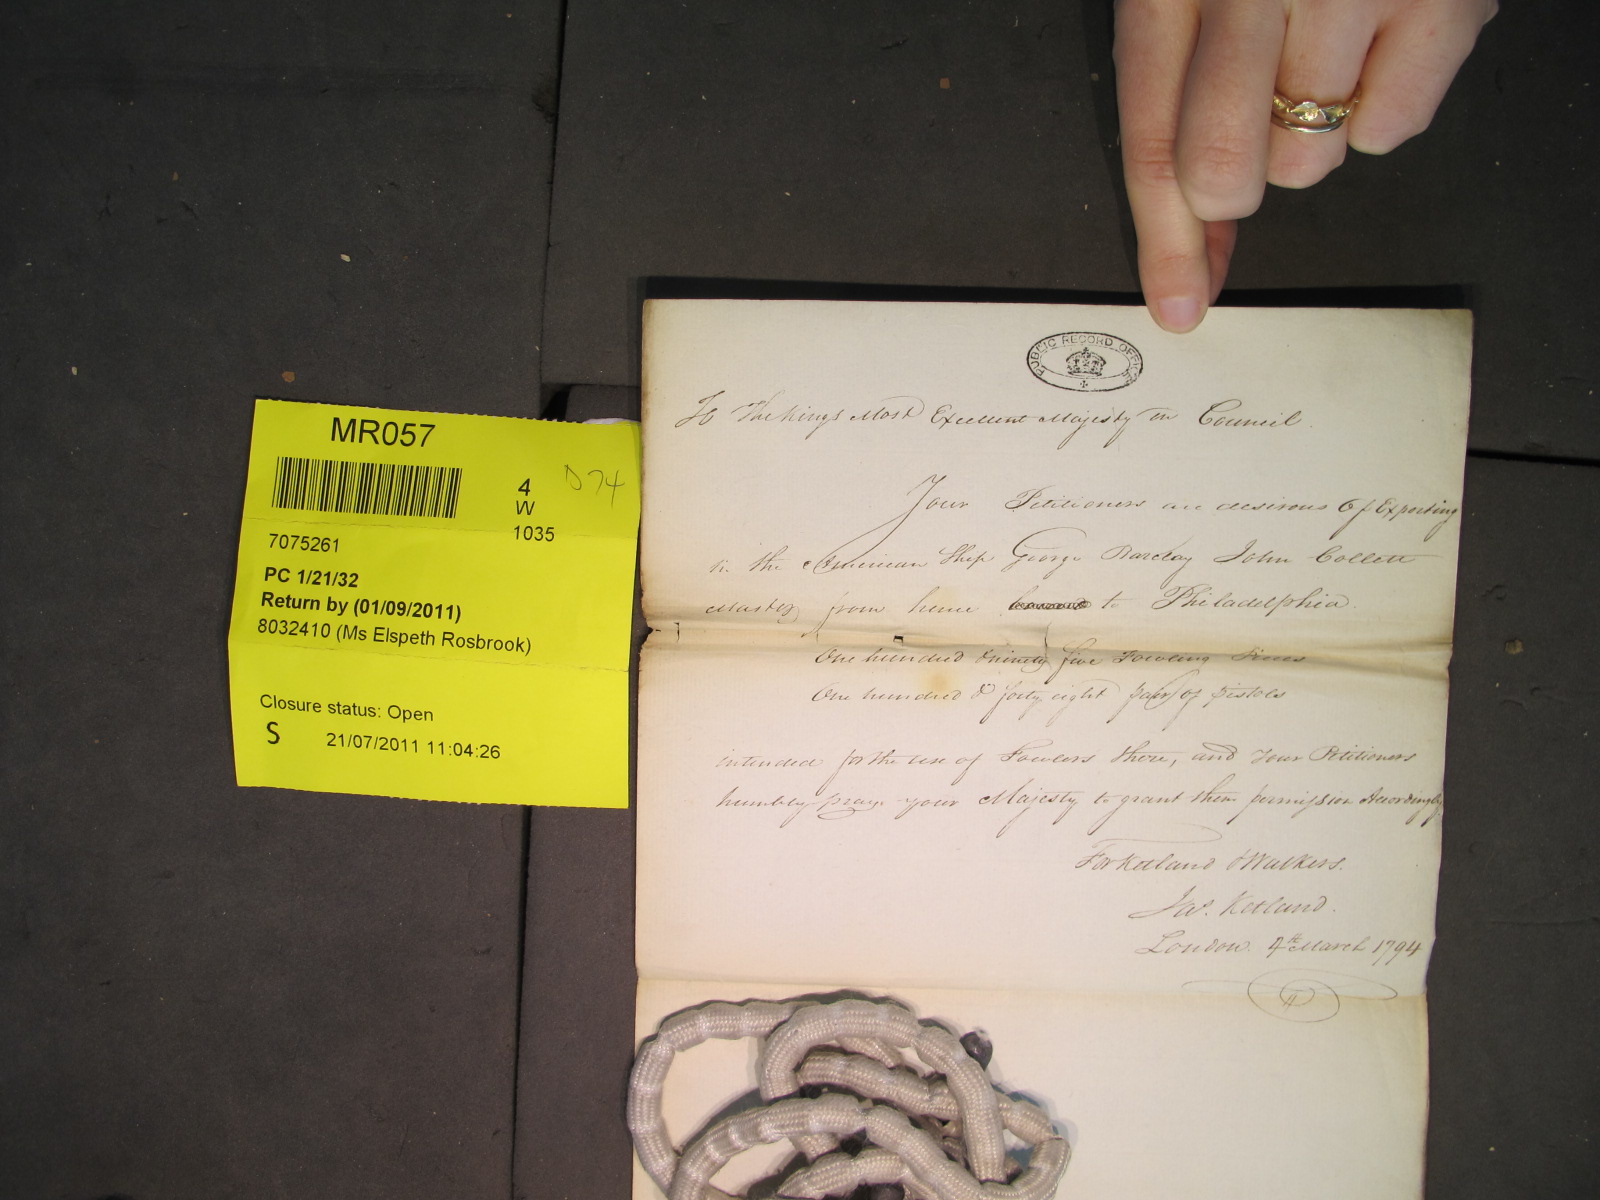 MR057
4
W
1035
D74
7075261
PC 1/21/32
Return by (01/09/2011)
8032410 (Ms Elspeth Rosbrook)
Closure status: Open
S 21/07/2011 11:04:26
PUBLIC RECORD OFFICE
To The Kings Most Excellent Majesty in Council.
Your Petitioners are desirous Of Exporting
in the American Ship George Barclay John Collett
Master from hence to Philadelphia.
One hundred & ninety five Fowling Pieces
One hundred & forty eight pair of pistols
intended for the use of Fowlers there, and Your Petitioners
humbly pray your Majesty to grant them permission Accordingly
For Ketland & Walkers.
Jas. Ketland.
London. 4th March 1794